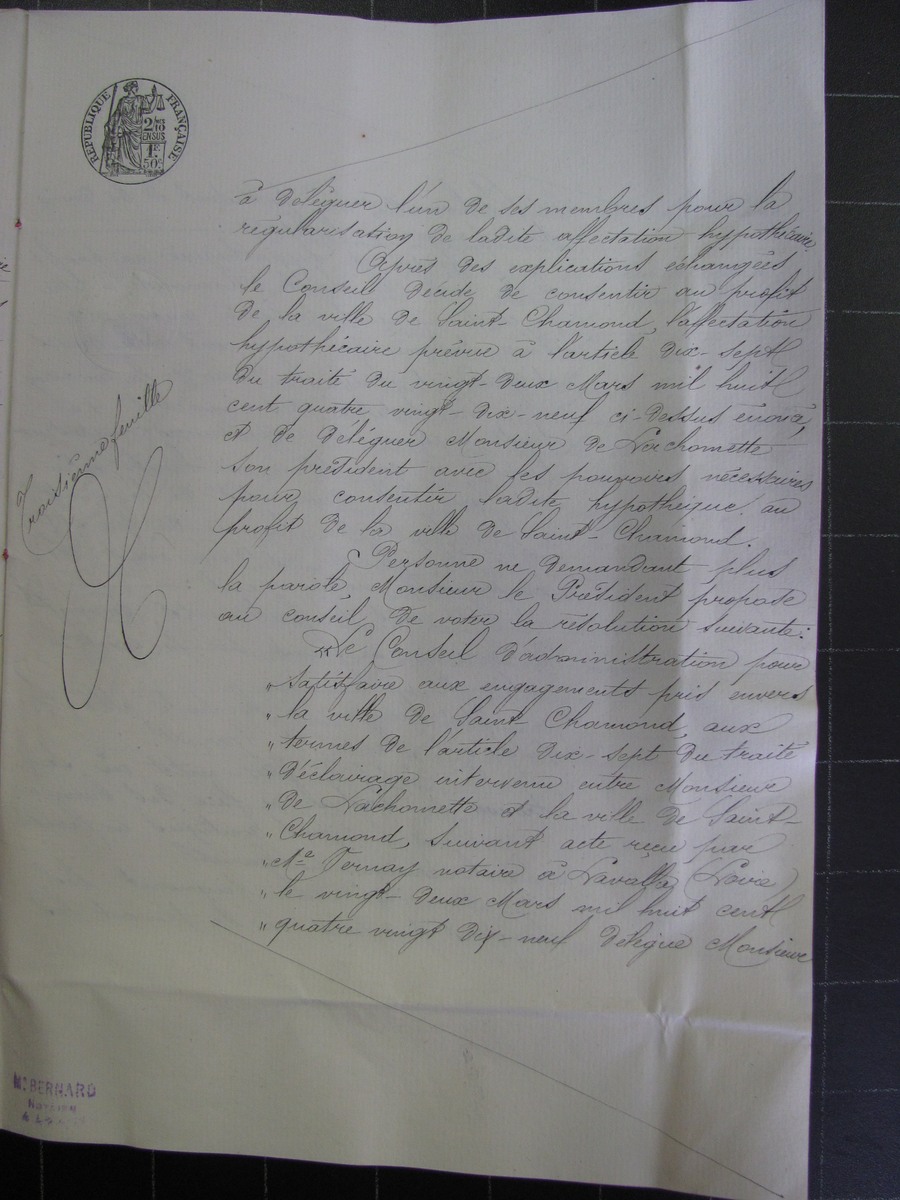 RÉPUBLIQUE FRANÇAISE
2/10
EN SUS
1F
50c
à déléguer l'un de ses membres pour la
régularisation de ladite affectation hypothécaire.
Après des explications échangées
le Conseil décide de consentir au profit
de la ville de Saint-Chamond, l'affectation
hypothécaire prévue à l'article dix-sept
du traité du vingt-deux Mars mil huit
cent quatre vingt-dix-neuf ci-dessus énoncé,
et de déléguer Monsieur de Lachomette
son président avec les pouvoirs nécessaires
pour consentir ladite hypothèque au
profit de la ville de Saint-Chamond.
Personne ne demandant plus
la parole, Monsieur le Président propose
au conseil de voter la résolution suivante:
"Le Conseil d'administration pour
" satisfaire aux engagements pris envers
" la ville de Saint Chamond, aux
" termes de l'article dix-sept du traité
" d'éclairage intervenu entre Monsieur
" de Lachomette et la ville de Saint-
" Chamond, suivant acte reçu par
" Me Fernay notaire à Lavalla (Loire)
" le vingt-deux Mars mil huit cent
" quatre vingt dix-neuf délègue Monsieur
Troisième feuille
Me BERNARD
Notaire